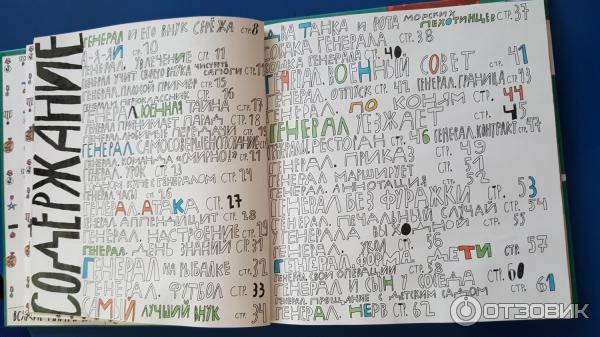 СОДЕРЖАНИЕ
ГЕНЕРАЛ И ЕГО ВНУК СЕРЁЖА СТР. 8
Й-Я-ЯЙ СТР. 10
ГЕНЕРАЛ. УВЛЕЧЕНИЕ СТР. 11
ГЕНЕРАЛ УЧИТ СВОЕГО ВНУКА ЧИСТИТЬ САПОГИ СТР.
ГЕНЕРАЛ. ПЛОХОЙ ПРИМЕР СТР. 15
СТР. 16
ГЕНЕРАЛ. ВОЕННАЯ ТАЙНА СТР. 17
ГЕНЕРАЛ ПРИНИМАЕТ ПАРАД СТР. 18
ПЕРЕДАЧИ СТР. 19
ГЕНЕРАЛ. САМОСОВЕРШЕНСТВОВАНИЕ
ГЕНЕРАЛ. КОМАНДА «СМИРНО!» СТР. 21
ГЕНЕРАЛ. УРОК СТР. 23
С ГЕНЕРАЛОМ СТР.
ГЕНЕРАЛ. ЧАСЫ СТР. 26
ГЕНЕРАЛ. АТАКА СТР. 27
ГЕНЕРАЛ. АППЕНДИЦИТ СТР. 28
ГЕНЕРАЛ. НАСТРОЕНИЕ СТР. 29
ГЕНЕРАЛ. ДЕНЬ ЗНАНИЙ СТР. 31
ГЕНЕРАЛ НА РЫБАЛКЕ СТР. 32
ГЕНЕРАЛ. ФУТБОЛ СТР. 33
САМЫЙ ЛУЧШИЙ ВНУК СТР. 34
ДВА ТАНКА И РОТА МОРСКИХ ПЕХОТИНЦЕВ СТР. 37
СОБАКА ГЕНЕРАЛА СТР. 38
КОШКА ГЕНЕРАЛА СТР. 40
ГЕНЕРАЛ. ВОЕННЫЙ СОВЕТ СТР. 41
ГЕНЕРАЛ. ОТПУСК СТР. 42 ГЕНЕРАЛ. ГРАНИЦА СТР. 43
ГЕНЕРАЛ. ПО КОНЯМ СТР. 44
ГЕНЕРАЛ УЕЗЖАЕТ СТР. 45
ГЕНЕРАЛ. РЕСТОРАН СТР. 46 ГЕНЕРАЛ. КОНТРАКТ СТР. 47
ГЕНЕРАЛ. ПРИКАЗ СТР. 49
ГЕНЕРАЛ МАРШИРУЕТ СТР. 51
ГЕНЕРАЛ. АННОТАЦИЯ СТР. 52
ГЕНЕРАЛ БЕЗ ФУРАЖКИ СТР. 53
ГЕНЕРАЛ. ПЕЧАЛЬНЫЙ СЛУЧАЙ СТР. 54
ГЕНЕРАЛА ВЫХОДНОЙ СТР. 55
УХИ СТР. 56
ГЕНЕРАЛ. ФОРМА. ДЕТИ СТР. 57
ГЕНЕРАЛ. СВОИ ОПЕРАЦИИ СТР. 58
ГЕНЕРАЛ И СЫН СОСЕДА СТР. 60
ГЕНЕРАЛ. ПРОЩАНИЕ С ДЕТСКИМ САДОМ СТР. 61
ГЕНЕРАЛ. НЕРВ СТР. 62
ОТЗОВИК